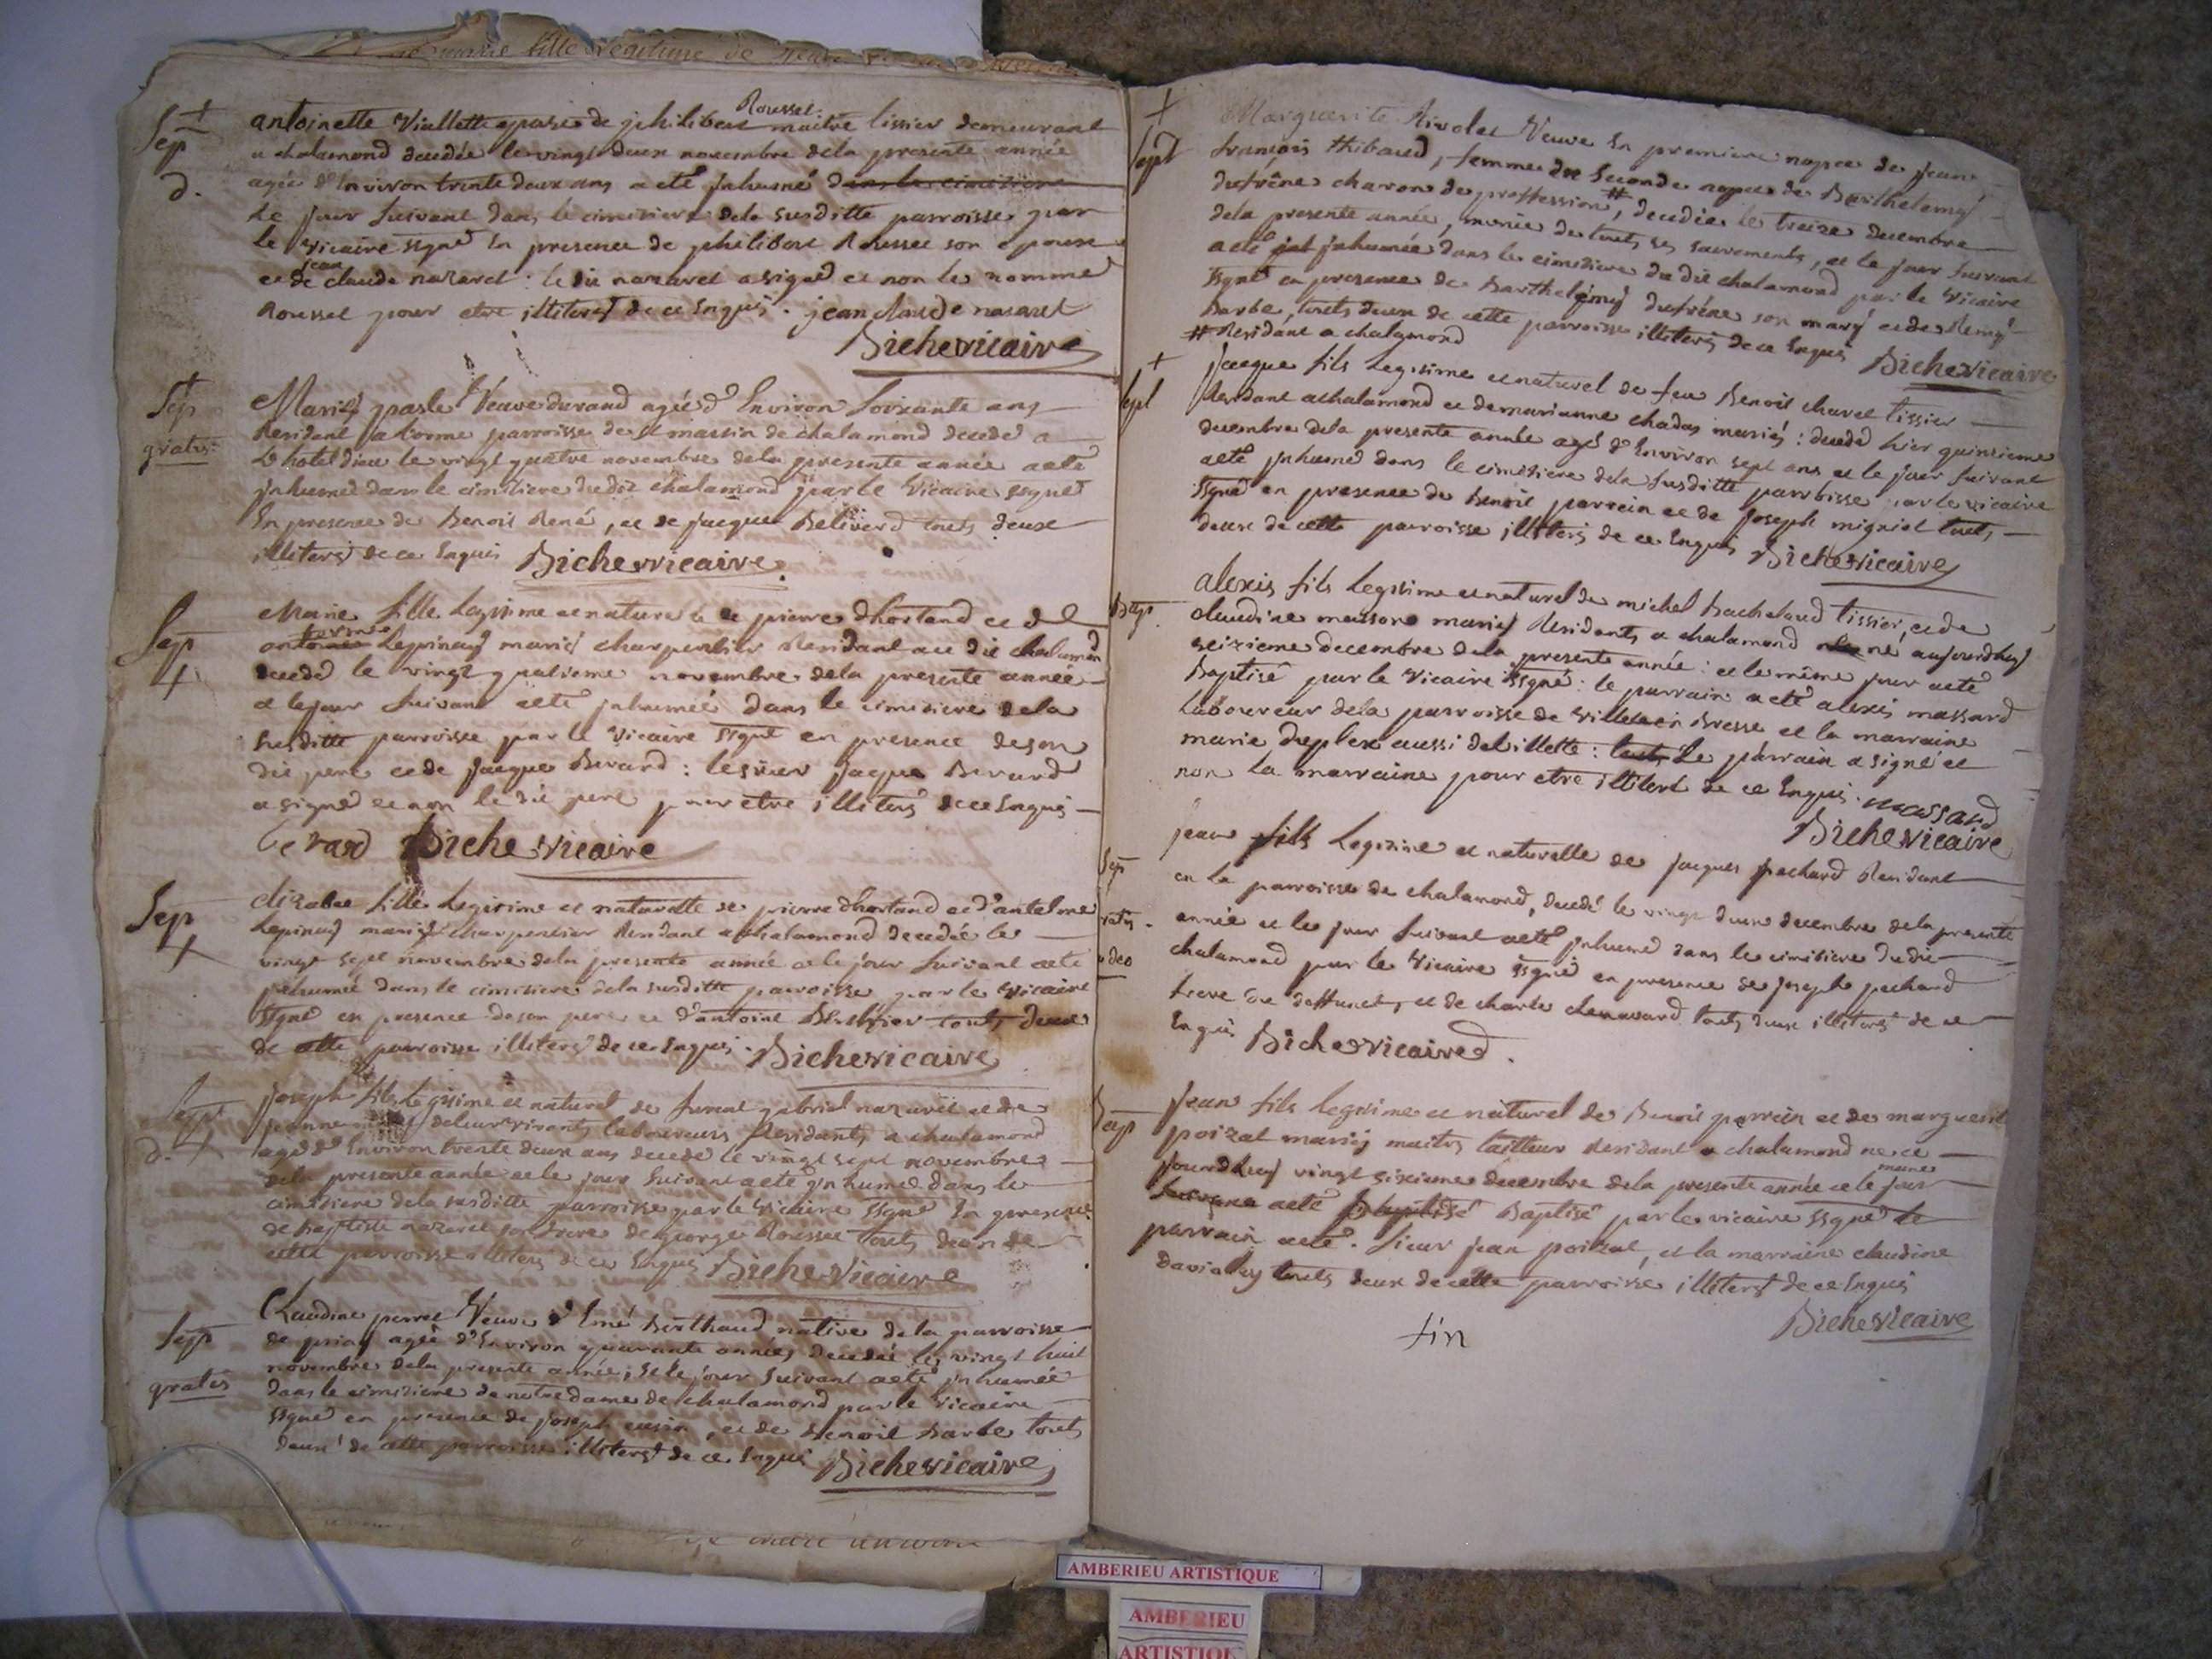 marie fille legitime de
Sep
d.
Roussel
antoinette Viallette epouse de philibert maitre tissier demeurant
a chalamond decedée le vingt deux novembre dela presente année
agée d'Environ trente deux ans a eté Inhumé dans le cimitiere
le jour suivant dans le cimitiere dela susditte parroisse par
le vicaire ssigné En presence de philibert Roussel son epoux
jean
et de claude nazaret : le dit nazaret a signé et non le nommé
Roussel pour etre illiteré de ce Enquis . jean claude nazaret
Biche vicaire
Sep
gratis
Marie pasle Veuve durand agée d'Environ soixante ans
Residant a lorme parroisse de st martin de chalamond decedé a
L'hotel dieu le vingt quatre novembre dela presente année a eté
Inhumé dans le cimitiere dudit chalamond par le Vicaire ssigné
En presence de Benoit René, et de jacque Beliverd touts deux
illiterés de ce Enquis Biche vicaire
Sep
Marie fille Legitime et naturele de pierre dhortand et d
Lepinay mariés charpentier Residant au dit chalamond
decedé le vingt quatrieme novembre dela presente année
et le jour suivant a eté inhumée dans le cimitiere dela
susditte parroisse par le Vicaire ssigné en presence de son
dit pere et de jacque Berard : le sieur jacque Berard
a signé et non le dit pere pour etre illiteré de ce Enquis
Berard Biche vicaire
Sep
fille Legitime et naturelle de pierre dhortand et d'antelme
Lepinay mariés charpentier Residant a chalamond decedée le
vingt sept novembre dela presente année et le jour suivant a eté
inhumée dans le cimitiere dela susditte parroisse par le Vicaire
ssigné en presence de son pere et d'antoine touts deux
de cette parroisse illiterés de ce Enquis . Biche vicaire
Sept
d.
joseph fils Legitime et naturel de gabriel nazaret et de
jeanne laboureurs Residants a chalamond
agé d'Environ trente deux ans decedé le vingt sept novembre
dela presente année et le jour suivant a eté inhumé dans le
cimitiere dela susditte parroisse par le Vicaire ssigné En presence
de Baptiste nazaret son frere de george Roussel touts deux de
cette parroisse illiterés de ce Enquis Biche Vicaire
Sep
gratis
Claudine perret Veuve d'Emé Berthaud native dela parroisse
de priay agée d'Environ quarante années decedée le vingt huit
novembre dela presente année, et le jour suivant a eté inhumée
dans le cimitiere de notre dame de chalamond par le Vicaire
ssigné en presence de joseph cusin, et de Benoit Barbe touts
deux de cette parroisse illiterés de ce Enquis Biche vicaire
Sept
Marguerite Rivolet Veuve En premiere nopce de jean
francois thibaud, femme En seconde nopce de Barthelemy
dufrêne charon de proffession #, decedée le treize decembre
dela presente année, munie de touts ses sacrements, et le jour suivant
a eté inhumée dans le cimitiere du dit chalamond par le Vicaire
ssigné en presence de Barthelemy dufrêne son mary et de Remy
Barbe, touts deux de cette parroisse illiterés de ce Enquis Biche vicaire
# Residant a chalamond
Sept
jacque fils Legitime et naturel de feu Benoit charel tissier
Residant a chalamond et de marianne chadas mariés : decedé hier quinzieme
decembre dela presente année agé d'Environ sept ans et le jour suivant
a eté inhumé dans le cimitiere dela susditte parroisse par le vicaire
ssigné en presence de Benoit perrein et de joseph migniot touts
deux de cette parroisse illiterés de ce Enquis Biche vicaire
Bap
alexis fils Legitime et naturel de michel Bachelard tissier, et de
claudine massons mariés Residants a chalamond né aujourdhuy
seizieme decembre dela presente année : et le même jour a eté
Baptisé par le Vicaire ssigné : le parrain a eté alexis massard
laboureur dela parroisse de villette en Bresse et la marraine
marie duplex aussi de villette : le parrain a signé et
non la marraine pour etre illiteré de ce Enquis . massard
Biche vicaire
Sep
gratis
deo
jean fils Legitime et naturelle de jacques pechard Residant
en la parroisse de chalamond, decedé le vingt deux decembre dela presente
année et le jour suivant a eté inhumé dans le cimitiere du dit
chalamond par le Vicaire ssigné en presence de joseph pechard
frere du deffunct, et de charle chenavard touts deux illiterés de ce
Enquis Biche vicaire .
Bap
jean fils legitime et naturel de Benoit perrein et de marguerite
poizat mariés maitre tailleur Residant a chalamond né ce
jourdhuy vingt sixieme decembre dela presente année et le jour
meme
suivant a eté Baptisé par le vicaire ssigné le
parrain a eté . sieur jean poizat, et la marraine claudine
touts deux de cette parroisse illiterés de ce Enquis
Biche vicaire
fin
AMBERIEU ARTISTIQUE
AMBERIEU